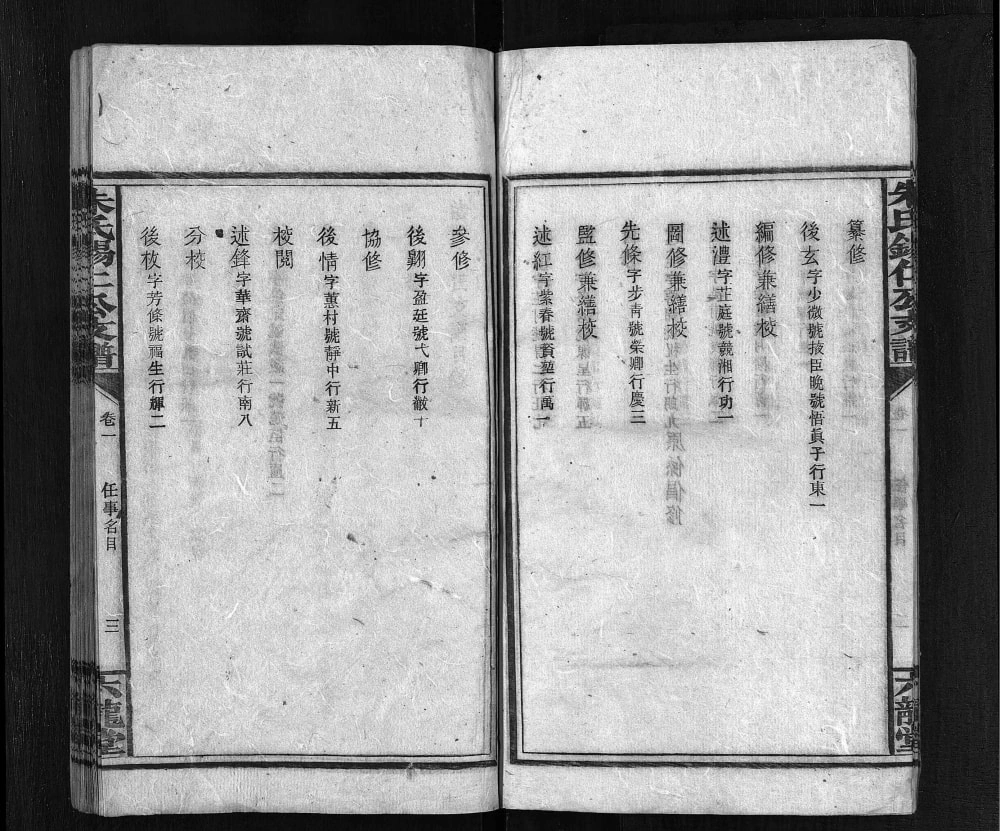 纂修
後玄字少微號拔臣晚號悟眞子行東一
編修兼繕校
述澧字茳庭號競湘行功一
圖修兼繕校
先條字步青號榮卿行慶三
監修兼繕校
述紅字紫春號賓堃行萬一
參修
後翾字盈廷號弋卿行徽十
協修
後情字蕙村號靜中行新五
校閱
述鋒字華齋號試莊行南八
分校
後枚字芳條號福生行輝二
朱氏錫仁公支譜
卷一
任事名目
三
六龍堂